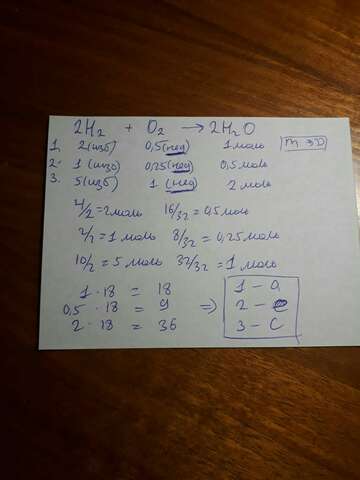 2H₂ + O₂ → 2H₂O
1. 2(изб) 0,5(нед) 1 моль
2. 1 (изб) 0,25(нед) 0,5 моль
3. 5(изб) 1 (нед) 2 моль
4/2 = 2 моль 16/32 = 0,5 моль
2/2 = 1 моль 8/32 = 0,25 моль
10/2 = 5 моль 32/32 = 1 моль
1 · 18 = 18
0,5 · 18 = 9
2 · 18 = 36
⇒
1 – a
2 – e
3 – C